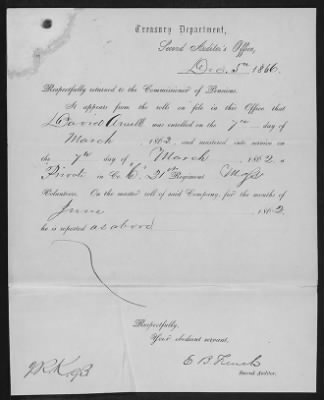 Treasury Department,
Second Auditor's Office,
Dec. 5th 1866
Respectfully returned to the Commissioner of Pensions.
It appears from the rolls on file in this Office that
David was enrolled on the 7th day of
March, 1862, and mustered into service on
the 7th day of March, 1862, a
Private in Co. 21st Regiment
Volunteers. On the muster roll of said Company, for the months of
June, 1862,
he is reported as above
Respectfully,
Your obedient servant,
E B French
Second Auditor.